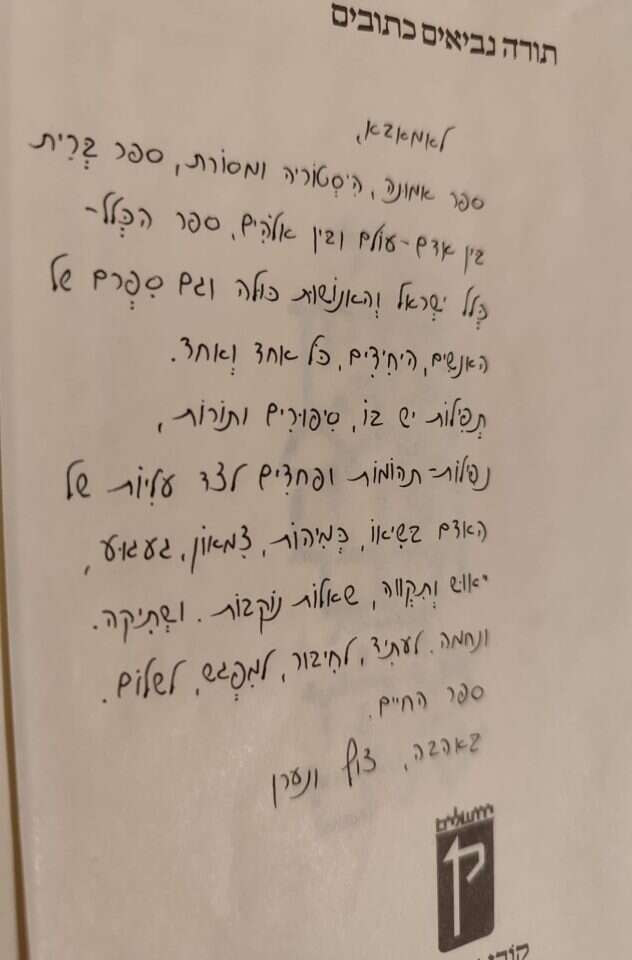 תורה נביאים כתובים
לאמאבא,
ספר אמונה, הִיסְטוֹריה ומסורת, ספר בְּרִית
בין אדם-עולם ובין אלֹהִים, ספר הכְּלל-
כְּלל יִשְראל וְהאנוֹשוּת כּוּלה וגם סִפְרם של
האנשִים, היחִידִים, כּל אחד וְאחד.
תְפִילוֹת יש בּוֹ, סִיפוּרִים ותוֹרוֹת,
נפִילוֹת-תהוֹמוֹת ופחדִים לצד עלִיוֹת של
האדם בשִׂיאוֹ, כְּמִיהוֹת, צִמאוֹן, געגוּע,
יאוּש וְתִקְווה, שאלוֹת נוֹקבוֹת. וּשְתִיקה.
ונחמה. לעתִיד, לחִיבּוּר, למִפְגש, לשלוֹם.
ספר החיים.
באהבה, צוף ונערן
ירושלים
קורן